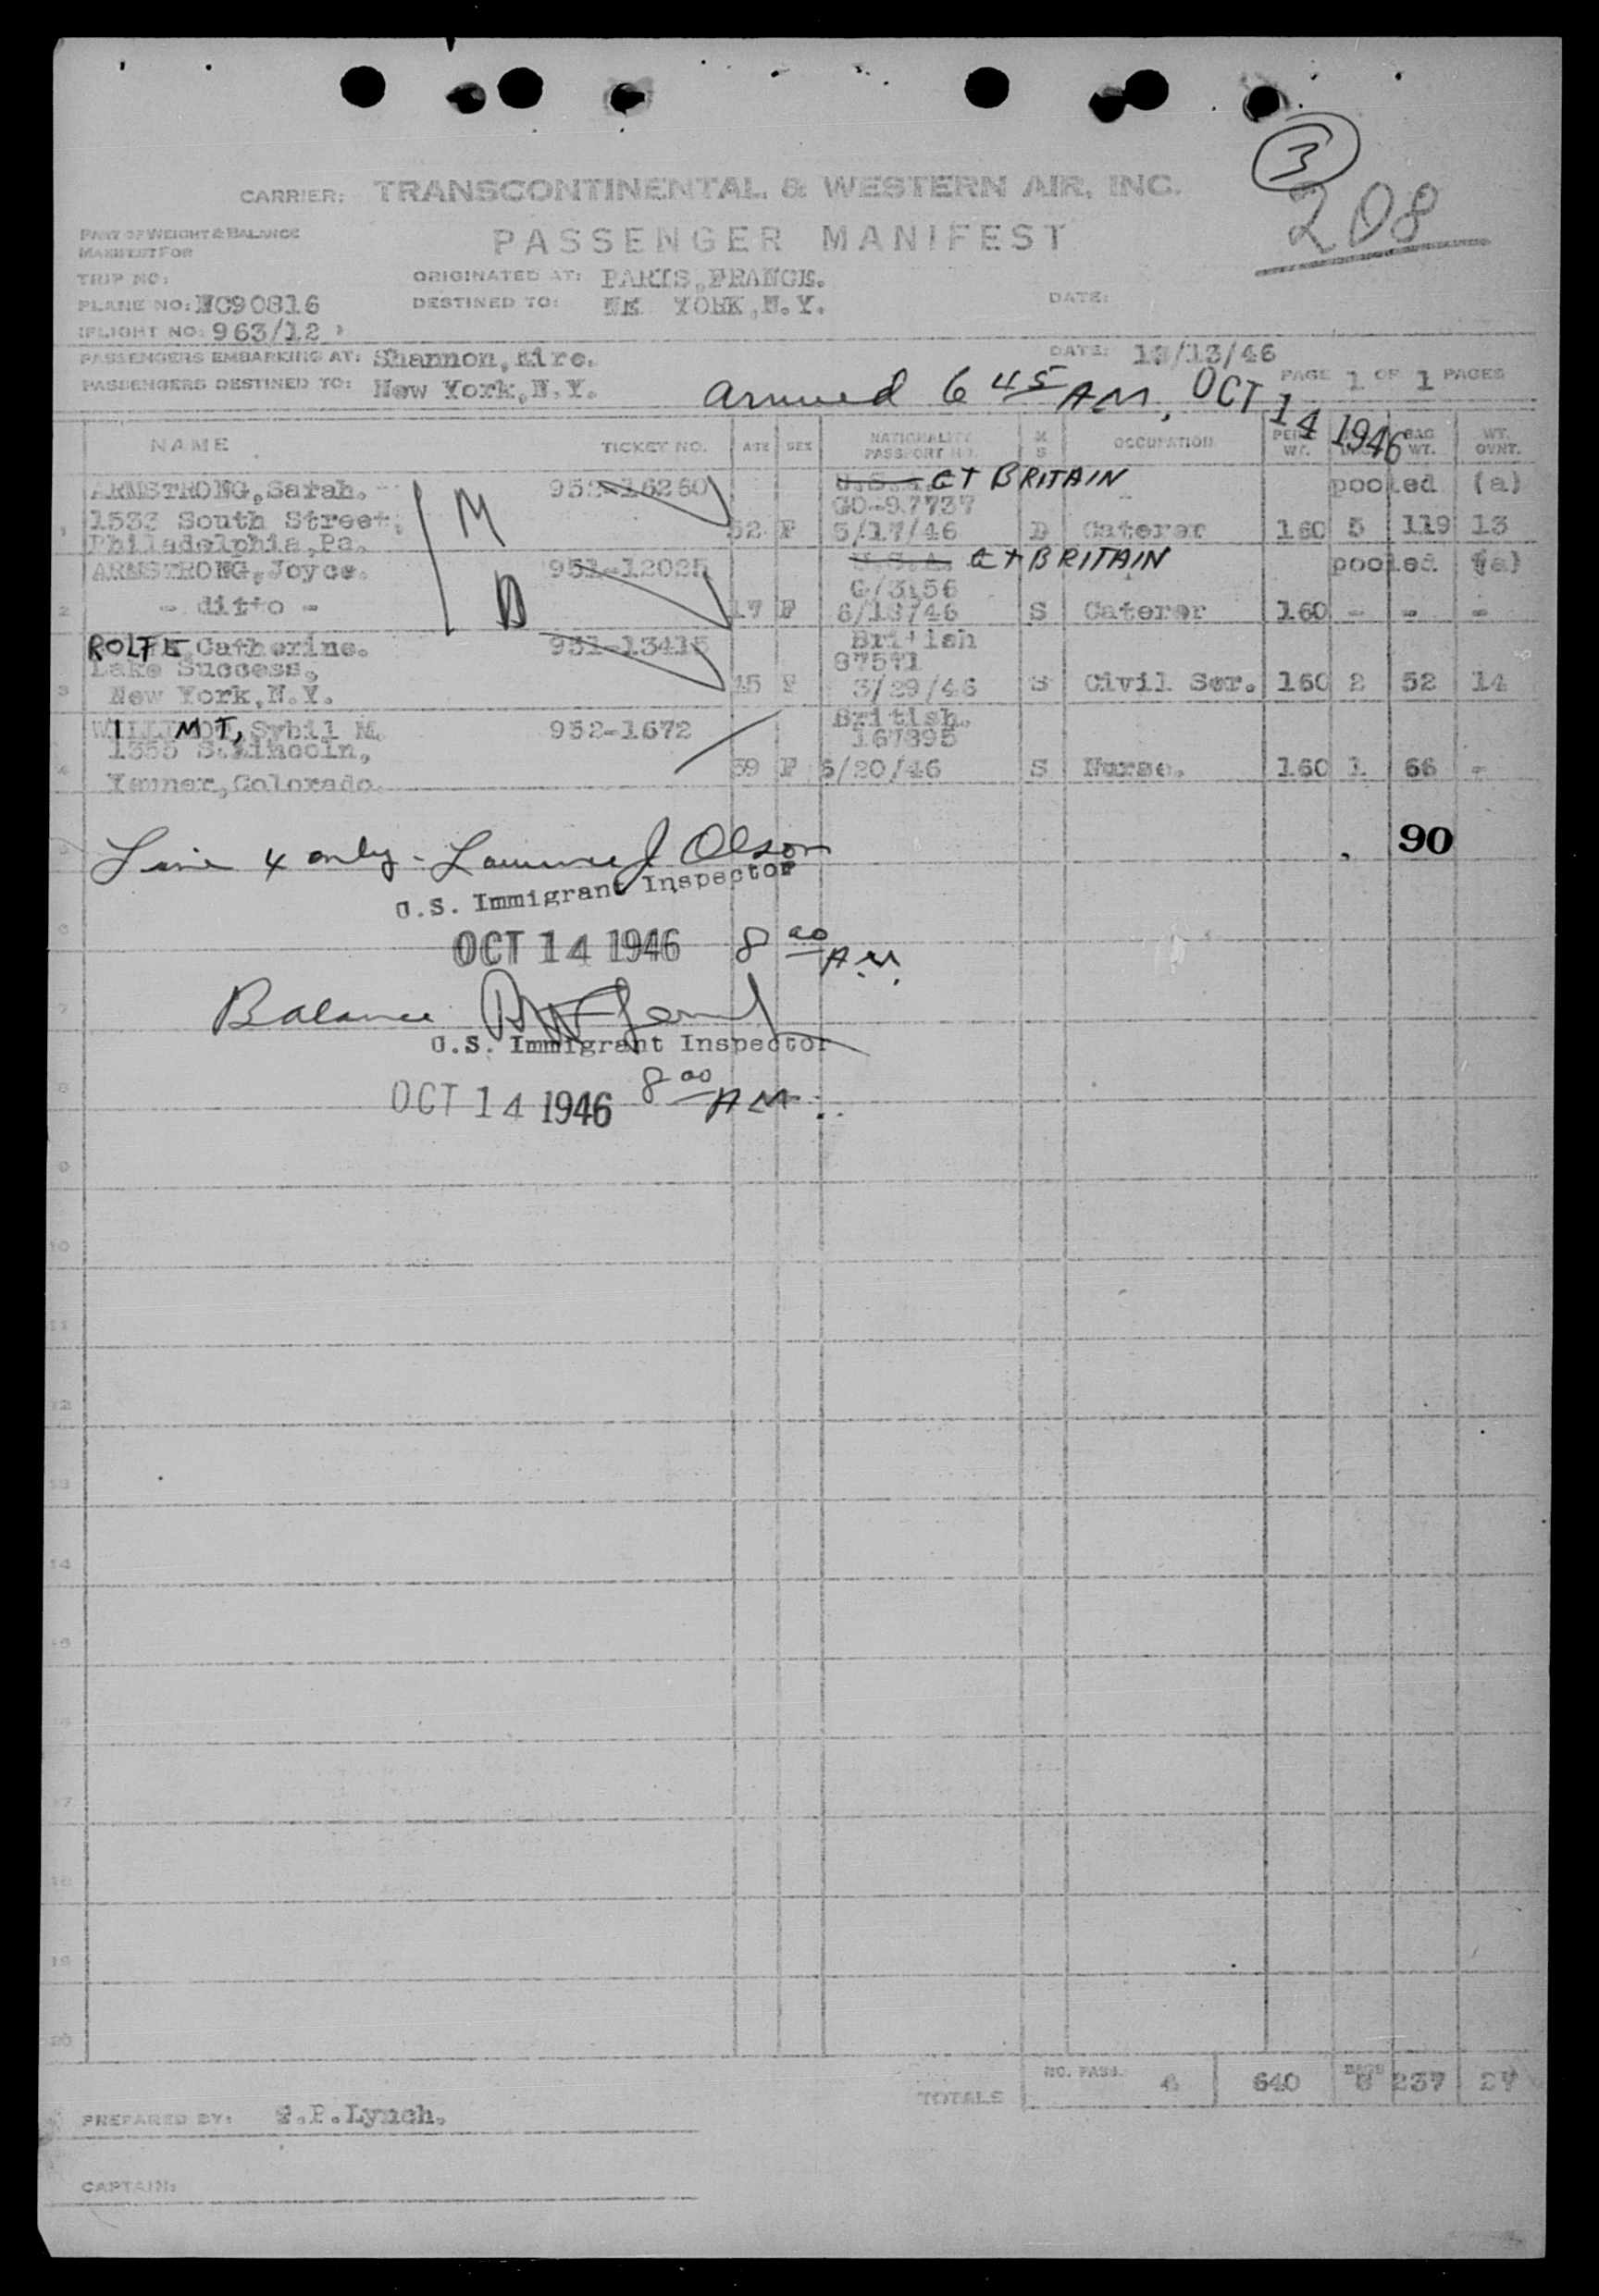 3
208
CARRIER: TRANSCONTINENTAL & WESTERN AIR, INC.
PASSENGER MANIFEST
PART OF WEIGHT & BALANCE
MANIFEST FOR
TRIP NO:
ORIGINATED AT: PARIS, FRANCE.
PLANE NO: NC90816
DESTINED TO: NE YORK, N.Y.
DATE:
FLIGHT NO: 963/12
PASSENGERS EMBARKING AT: Shannon, Eire.
DATE: 10/13/46
PASSENGERS DESTINED TO: New York, N.Y.
PAGE 1 OF 1 PAGES
Arrived 6 45 AM, OCT 14 1946
NAME TICKET NO. AGE SEX NATIONALITY M S OCCUPATION WT. BAG WT. WT. OVNT.
PASSPORT NO.
ARMSTRONG, Sarah. 952-16260 U.S.A. GT BRITAIN pooled (a)
1533 South Street, GO-97737
1 Philadelphia, Pa. 52 F 5/17/46 Caterer 160 5 119 13
ARMSTRONG, Joyce. 951-12025 U.S.A. GT BRITAIN pooled (a)
M
D
2 - ditto - 17 F S Caterer 160 - - -
ROLFE Catherine. 951-13415 British
Lake Success,
3 New York, N.Y. F 3/29/46 S Civil Ser. 160 2 52 14
WILLMOT, Sybil M. 952-1672 British.
1355 S. Lincoln, 167895
4 Colorado. 59 F 5/20/46 S Nurse. 160 1 66 -
90
Line 4 only - Lawrence J Olson
U.S. Immigrant Inspector
OCT 14 1946 8 00 A.M.
Balance
U.S. Immigrant Inspector
OCT 14 1946 8 00 AM.
5
6
7
8
9
10
11
12
13
14
15
17
18
19
20
TOTALS NO. PASS. 4 640 BAGS 8 237 27
PREPARED BY: P. Lynch.
CAPTAIN: